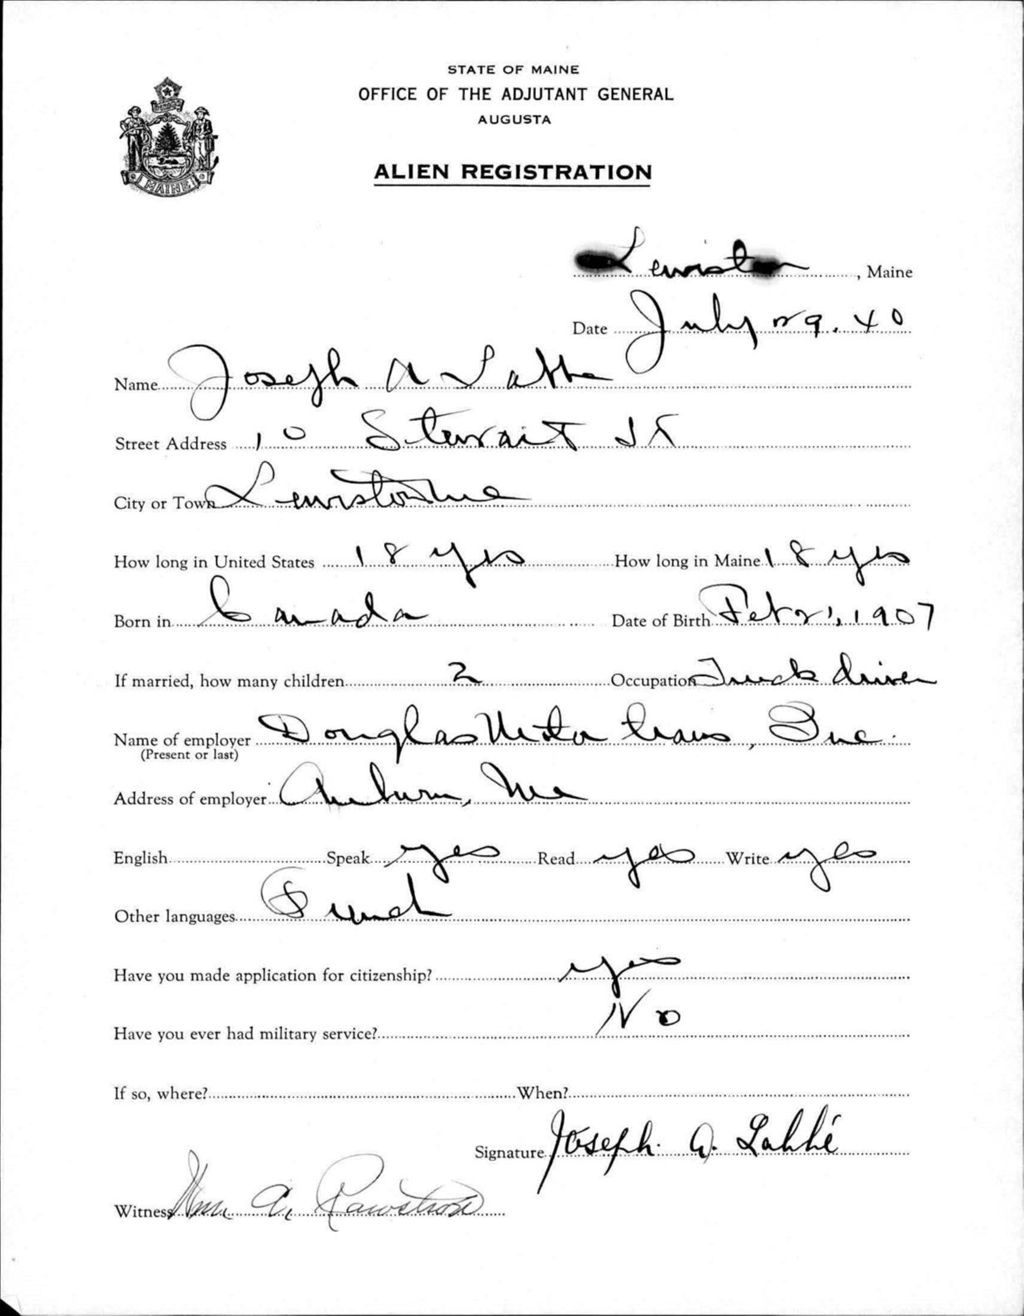 STATE OF MAINE
OFFICE OF THE ADJUTANT GENERAL
AUGUSTA
ALIEN REGISTRATION
MAINE
Lewiston, Maine
Date July 29. 40
Name Joseph A Labbe
Street Address 10 Stewart St
City or Town Lewiston Me
How long in United States 18 yrs How long in Maine 18 yrs
Born in Canada Date of Birth Feb 21, 1907
If married, how many children 2 Occupation Truck driver
Name of employer Douglas Motor Trans, Inc.
(Present or last)
Address of employer Auburn, Me
English Speak yes Read yes Write yes
Other languages French
Have you made application for citizenship? yes
Have you ever had military service? No
If so, where? When?
Signature Joseph A. Labbé
Witness Wm. A. Rawstron